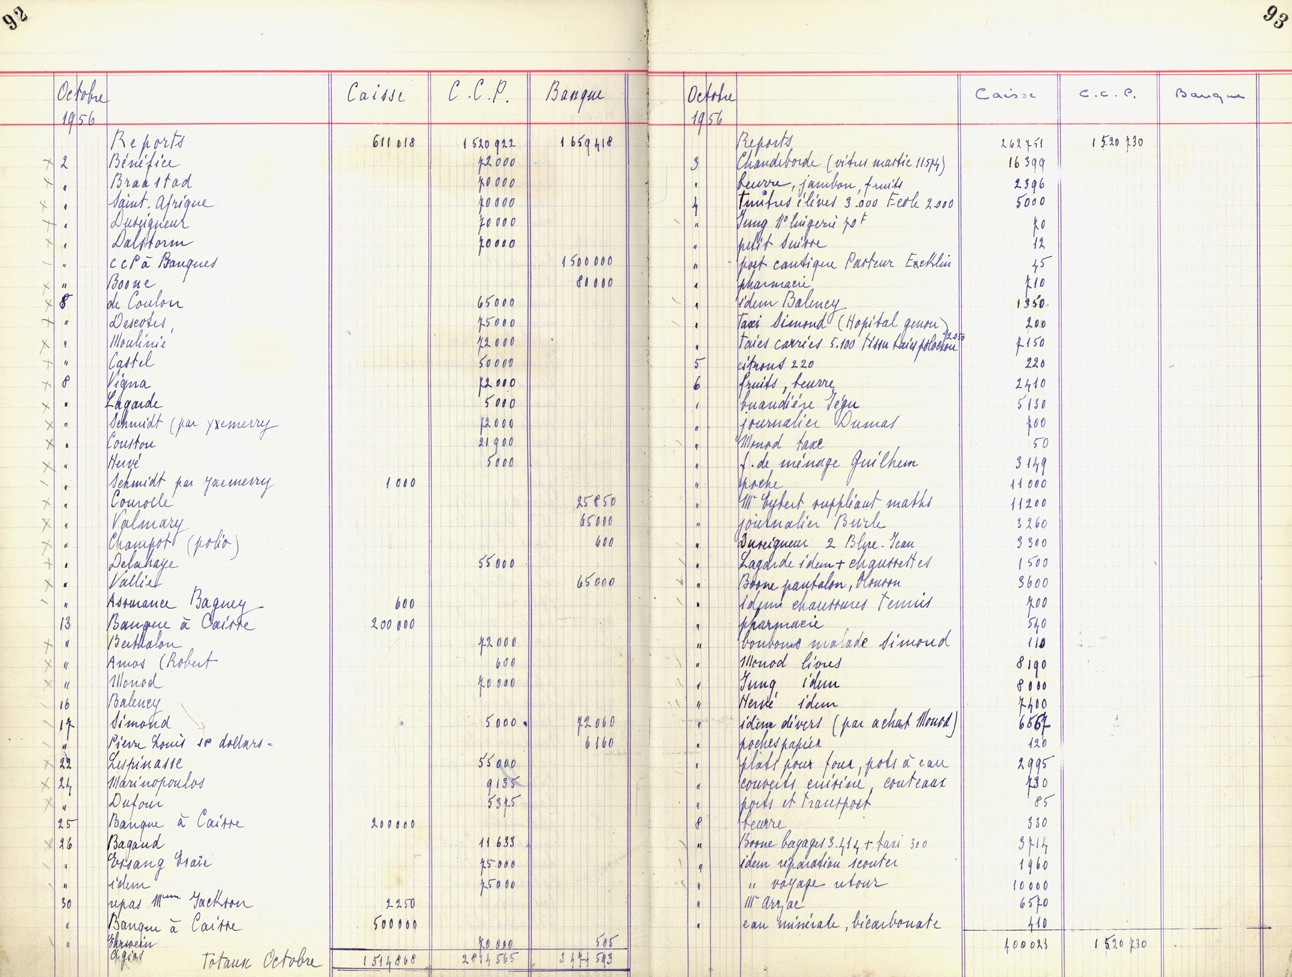 92
Octobre Caisse C.C.P. Banque
1956
Reports 611018 1520922 1659418
2 Bénéfice 72000
" Braastad 70000
" Saint. Afrique 70000
" Duseigneur 70000
" Dalstorm 70000
" CCP à Banques 1500000
" Boone 80000
8 de Coulon 65000
" Descotes, 75000
" Moulinié 72000
" Castel 50000
8 Vigna 72000
" Lagarde 5000
" Schmidt (par yxemerry 72000
" Couston 21900
" Hervé 5000
" Schmidt par yxemerry 1000
" Courolle 25850
" Valmary 65000
" Champots (polio) 600
" Delahaye 55000
" Vallier 65000
" Assurance Bagney 600
13 Banque à Caisse 200000
" Berthalon 72000
" Amos (Robert 600
" Monod 70000
16 Balency
17 Simond 5000 72060
" Pierre Louis 18 dollars - 6160
22 Lespinasse 55000
24 Marinopoulos 9135
" Dufour 5375
25 Banque à Caisse 200000
26 Bagaud 11633
" Ersang Eraïe 75000
" idem 75000
30 repas Mme Jackson 2250
" Banque à Caisse 500000
" 70000 505
Agios
Totaux Octobre 1514868 2814565 3474593
93
Octobre Caisse C.C.P. Banque
1956
Reports 262751 1520730
3 Chaudeborde (vitres martie 11574) 16399
" beurre, jambon, fruits 2396
4 Timbres élèves 3.000 Ecole 2000 5000
" Jung lingerie 70
" petit Suisse 12
" port cantique Pasteur Excklin 45
" pharmacie 710
" idem Balency 1350
" Taxi Simond (Hopital genou) 200
" Taies carrées 5.100 7150
5 citrons 220 220
6 fruits, beurre 2410
" buandière Ségu 5130
" journalier Dumas 700
" Monod taxe 50
" f. de ménage Guilhem 3149
" poche 11000
" Mr Eybert suppléant maths 11200
" journalier Burle 3260
" Duseigneur 2 Jean 3300
" Lagarde idem + chaussettes 1500
" Boone pantalon, blouson 3600
" idem chaussures tennis 700
" pharmacie 540
" bonbons malade Simond 110
" Monod livres 8190
" Jung idem 8000
" Hervé idem 7400
" idem divers (par achat Monod) 6567
" poches papier 120
" plats pour four, pots à eau 2995
" couverts cuisine, couteaux 730
" ports et transport 85
8 beurre 330
" Boone bagages 3.414 + taxi 300 3714
" idem réparation scooter 1960
" " voyage retour 10000
" Mr Arrjac 6570
" eau minérale, bicarbonate 410
400023 1520730